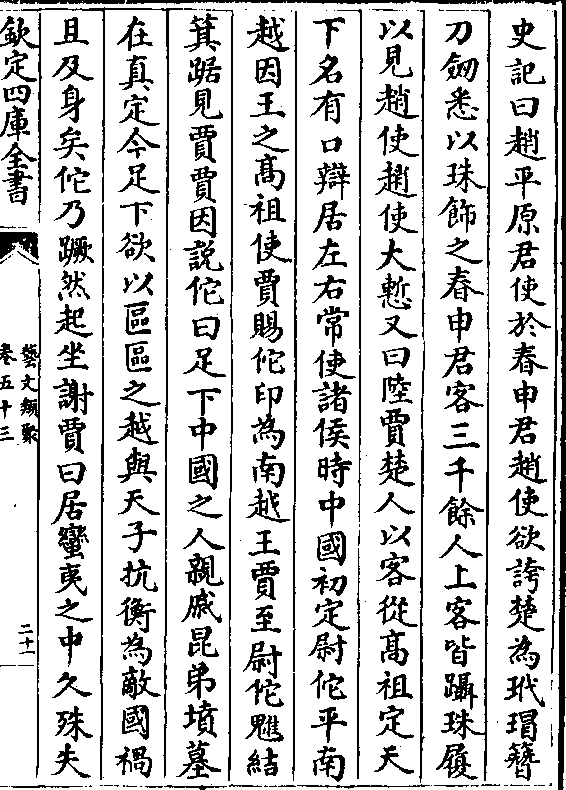 史記曰趙平原君使於春申君趙使欲誇楚為玳瑁簪
刀劒悉以珠飾之春申君客三千餘人上客皆躡珠履
以見趙使趙使大慙又曰陸賈楚人以客從髙祖定天
下名有口辯居左右常使諸侯時中國初定尉佗平南
越因王之髙祖使賈賜佗印為南越王賈至尉佗魋結
箕踞見賈賈因説佗曰足下中國之人親戚昆弟墳墓
在真定今足下欲以區區之越與天子抗衡為敵國禍
且及身矣佗乃蹶然起坐謝賈曰居蠻夷之中久殊失
欽定四庫全書
藝文類聚
卷五十三
二十一